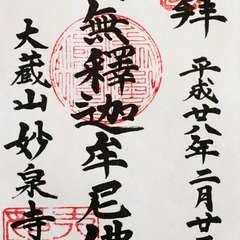 拜
平成廿八年二月廿
無釋迦牟尼佛
大蔵山妙泉寺